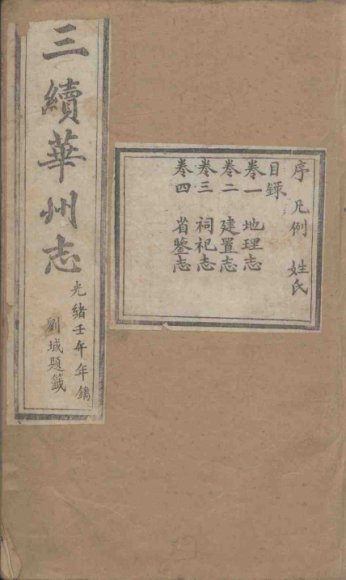 三續華州志
光緒壬午年鐫
劉域題籤
序 凡例 姓氏
目錄
卷一 地理志
卷二 建置志
卷三 祠祀志
卷四 省鑒志